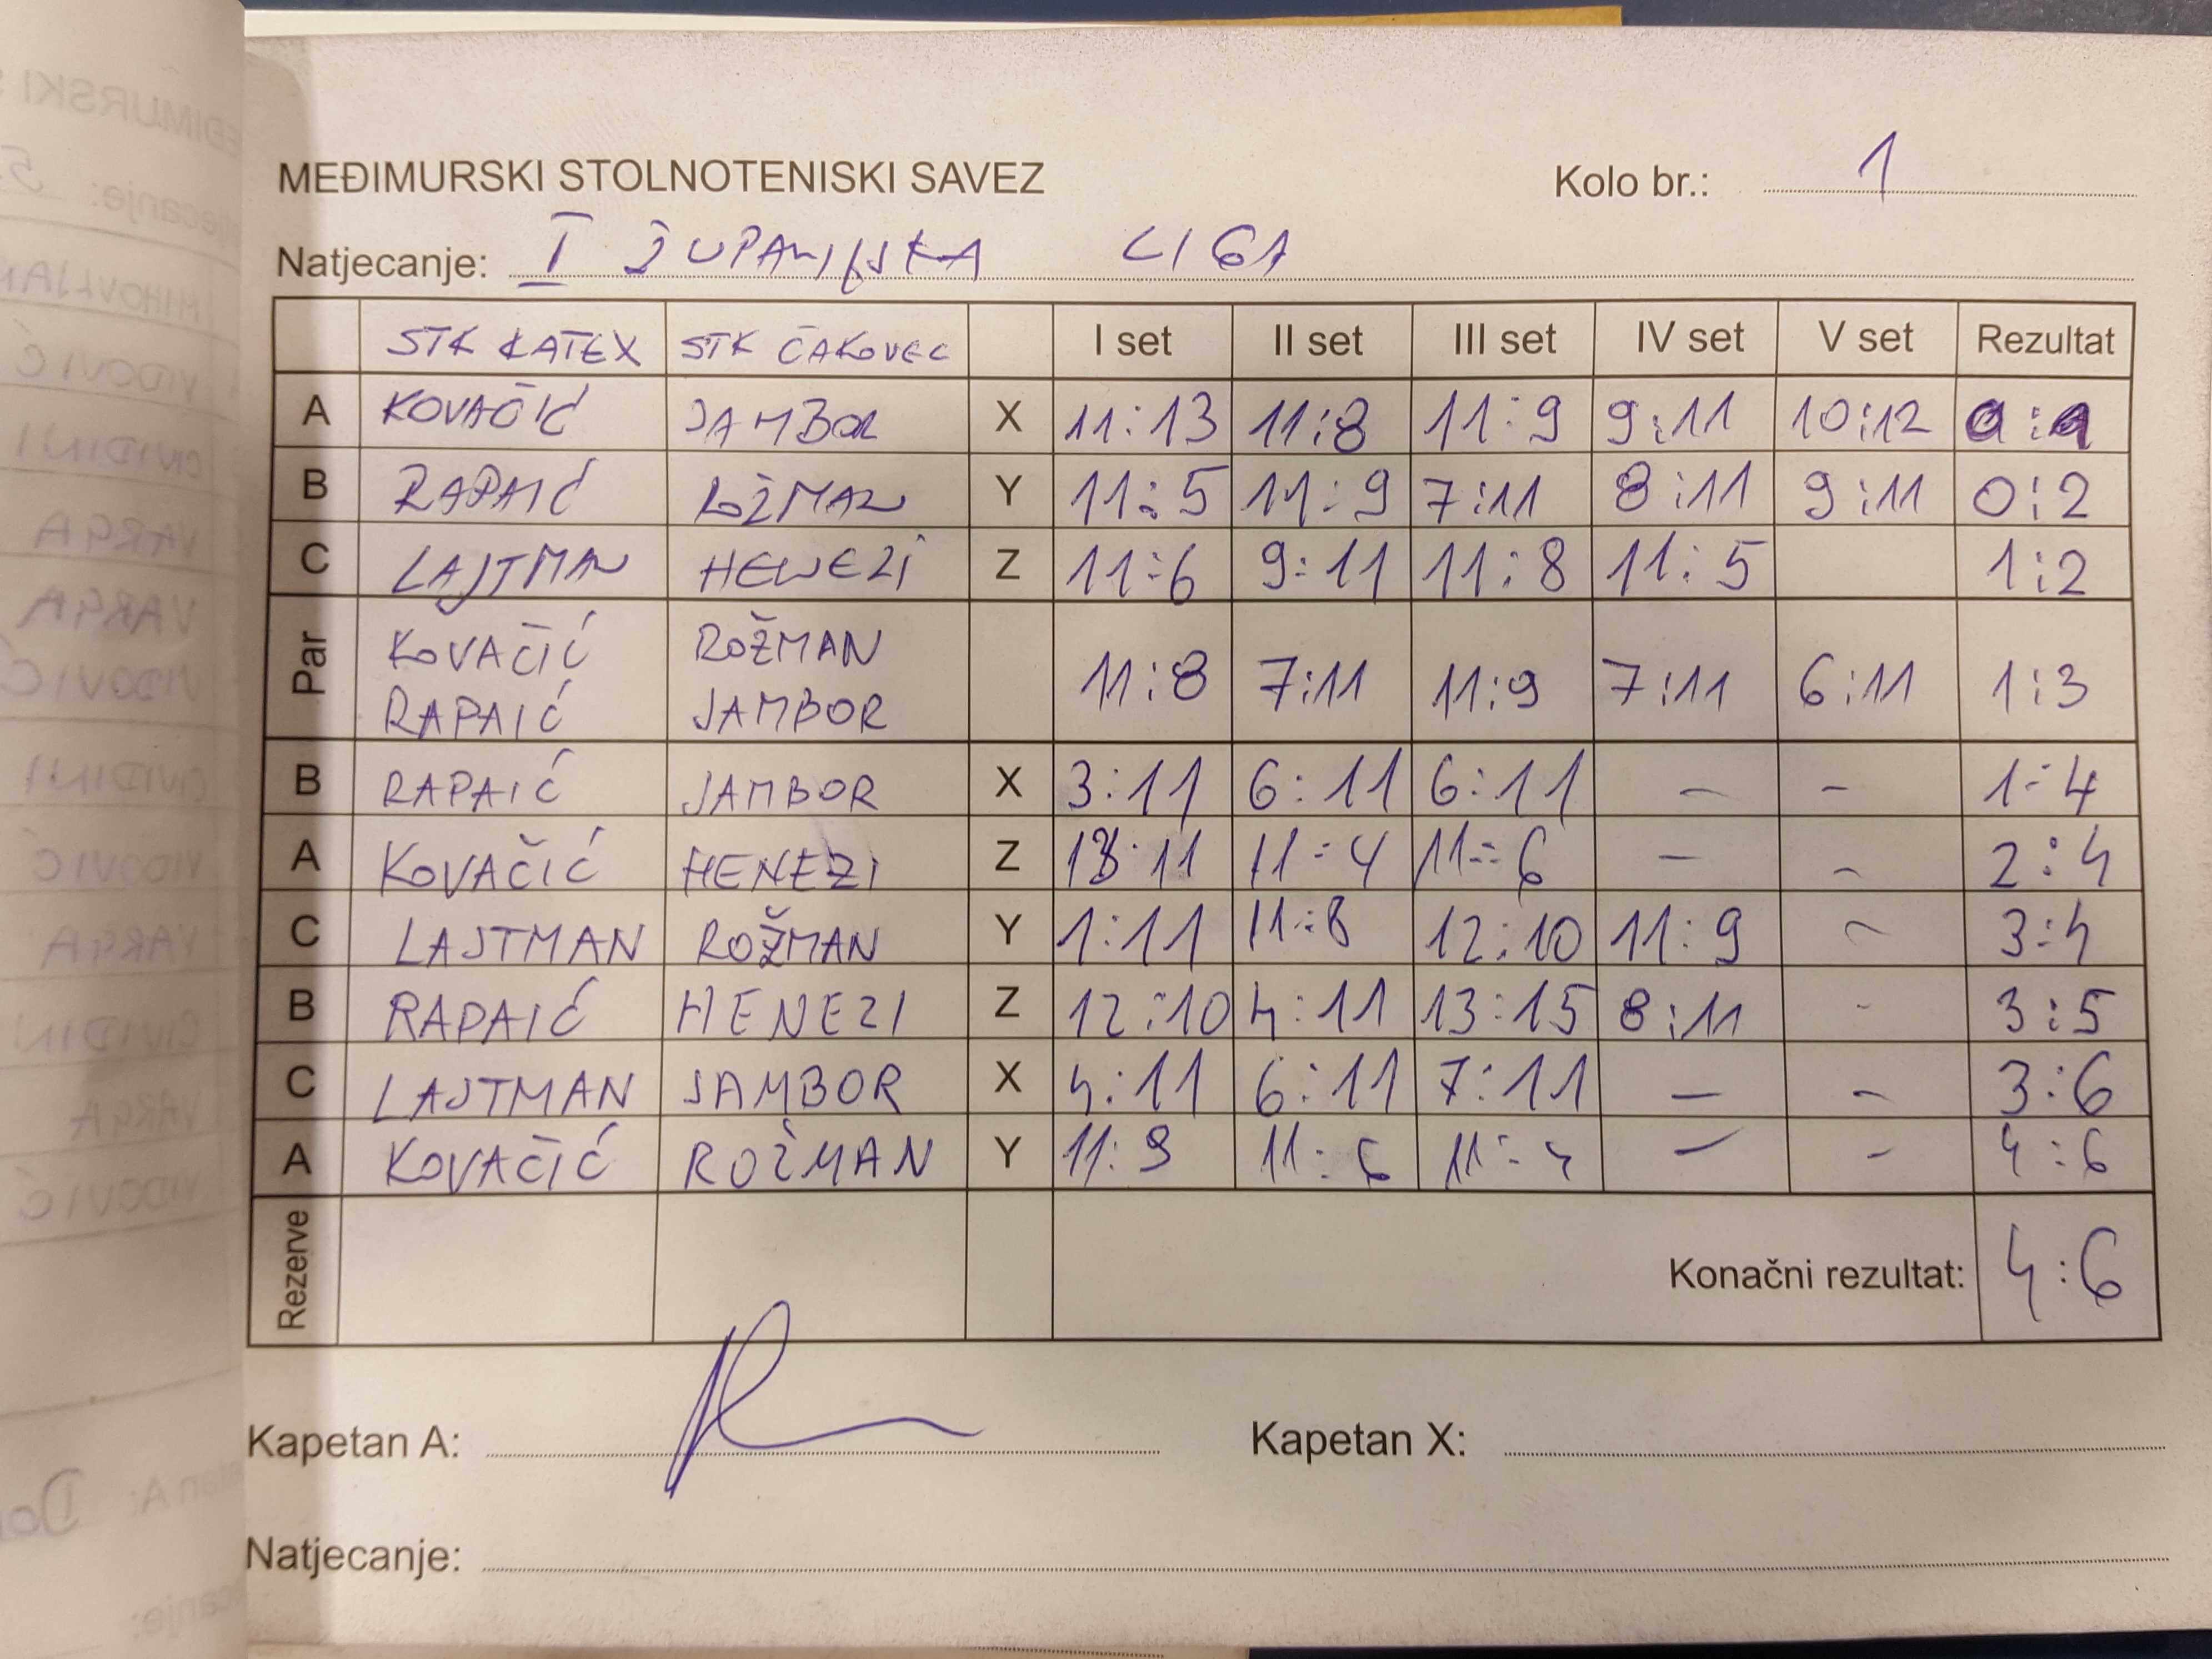 MEĐIMURSKI STOLNOTENISKI SAVEZ Kolo br.: 1
Natjecanje: I ŽUPANIJSKA LIGA
STK KATEX STK ČAKOVEC I set II set III set IV set V set Rezultat
A KOVAČIĆ JAMBOR X 11:13 11:8 11:9 9:11 10:12 0:1
B RAPAIĆ ROŽMAN Y 11:5 11:9 7:11 8:11 9:11 0:2
C LAJTMAN HENEZI Z 11:6 9:11 11:8 11:5 1:2
Par KOVAČIĆ ROŽMAN
RAPAIĆ JAMBOR 11:8 7:11 11:9 7:11 6:11 1:3
B RAPAIĆ JAMBOR X 3:11 6:11 6:11 – – 1:4
A KOVAČIĆ HENEZI Z 13:11 11:4 11:6 – – 2:4
C LAJTMAN ROŽMAN Y 1:11 11:8 12:10 11:9 – 3:4
B RAPAIĆ HENEZI Z 12:10 4:11 13:15 8:11 - 3:5
C LAJTMAN JAMBOR X 4:11 6:11 7:11 – – 3:6
A KOVAČIĆ ROŽMAN Y 11:9 11:6 11:4 – – 4:6
Rezerve Konačni rezultat: 4:6
Kapetan A: Kapetan X:
Natjecanje: